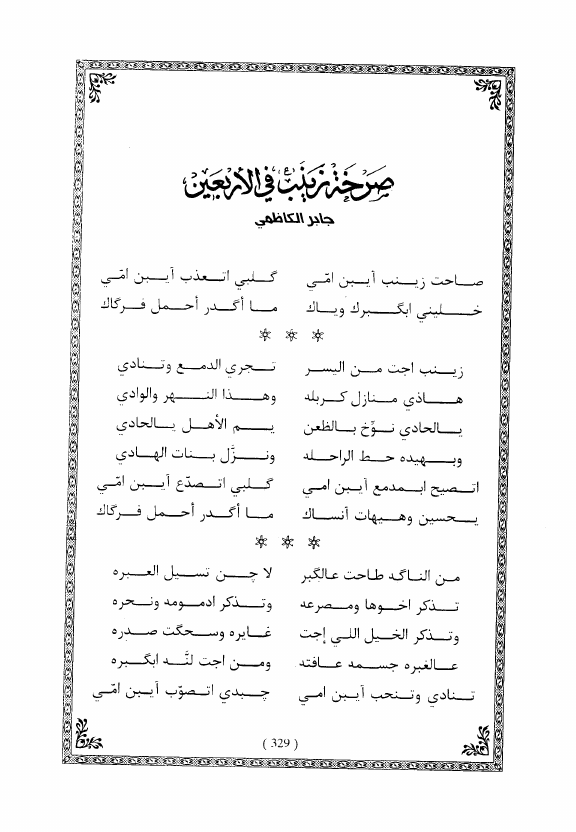 صرخة زينب (ع) في الأربعين
جابر الكاظمي
صاحت زينب آيبن امّي گلبي اتعذب آيبن امّي
خليني ابگبرك وياك ما أگدر أحمل فرگاك
زينب اجت من اليسر تجري الدمع وتنادي
هاذي منازل كربله وهذا النهر والوادي
يالحادي نوِّخ بالظعن يم الأهل يالحادي
وبهيده حط الراحله ونزَّل بنات الهادي
اتصيح ابمدمع آيبن امي گلبي اتصدّع آيبن امّي
يحسين وهيهات آنساك ما أگدر أحمل فرگاك
من الناگه طاحت عالگبر لا چن تسيل العبره
تذكر اخوها ومصرعه وتذكر ادمومه ونحره
وتذكر الخيل اللي إجت غايره وسحگت صدره
عالغبره جسمه عافته ومن اجت لنَّه ابگبره
تنادي وتنحب آيبن امي چبدي اتصوّب آيبن امّي
( 329 )